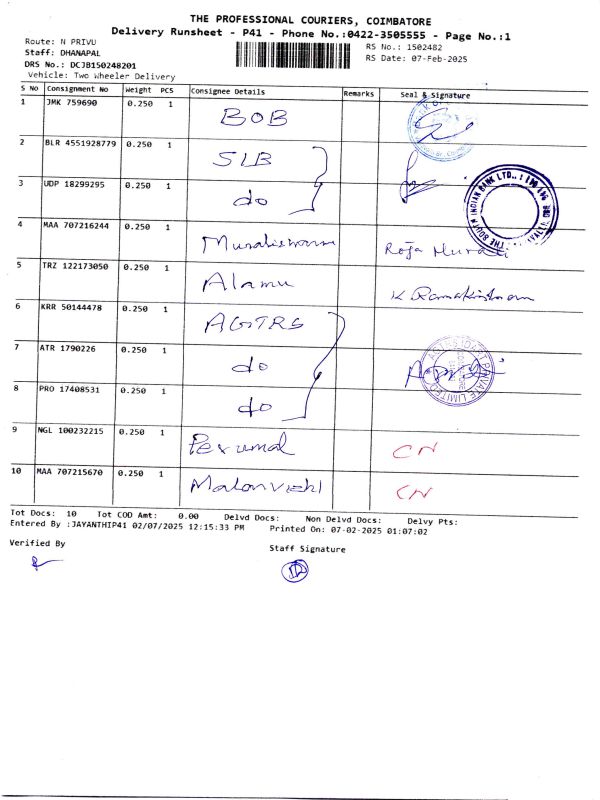 THE PROFESSIONAL COURIERS, COIMBATORE
Delivery Runsheet - P41 - Phone No.:0422-3505555 - Page No.:1
Route: N PRIVU
RS No.: 1502482
Staff: DHANAPAL
RS Date: 07-Feb-2025
DRS No.: DCJB150248201
Vehicle: Two Wheeler Delivery
S No Consignment No Weight PCS Consignee Details Remarks Seal & Signature
1 JMK 759690 0.250 1 BOB
2 BLR 4551928779 0.250 1 SIB
3 UDP 18299295 0.250 1 do
THE SOUTH INDIAN BANK LTD.
4 MAA 707216244 0.250 1 Roja Murali
5 TRZ 122173050 0.250 1 Alamu K Ramakrishnan
6 KRR 50144478 0.250 1
7 ATR 1790226 0.250 1 do
PRIVATE LIMITED
8 PRO 17408531 0.250 1 do
9 NGL 100232215 0.250 1 Perumal CN
10 MAA 707215670 0.250 1 CN
Tot Docs: 10 Tot COD Amt: 0.00 Delvd Docs: Non Delvd Docs: Delvy Pts:
Entered By :JAYANTHIP41 02/07/2025 12:15:33 PM Printed On: 07-02-2025 01:07:02
Verified By
Staff Signature